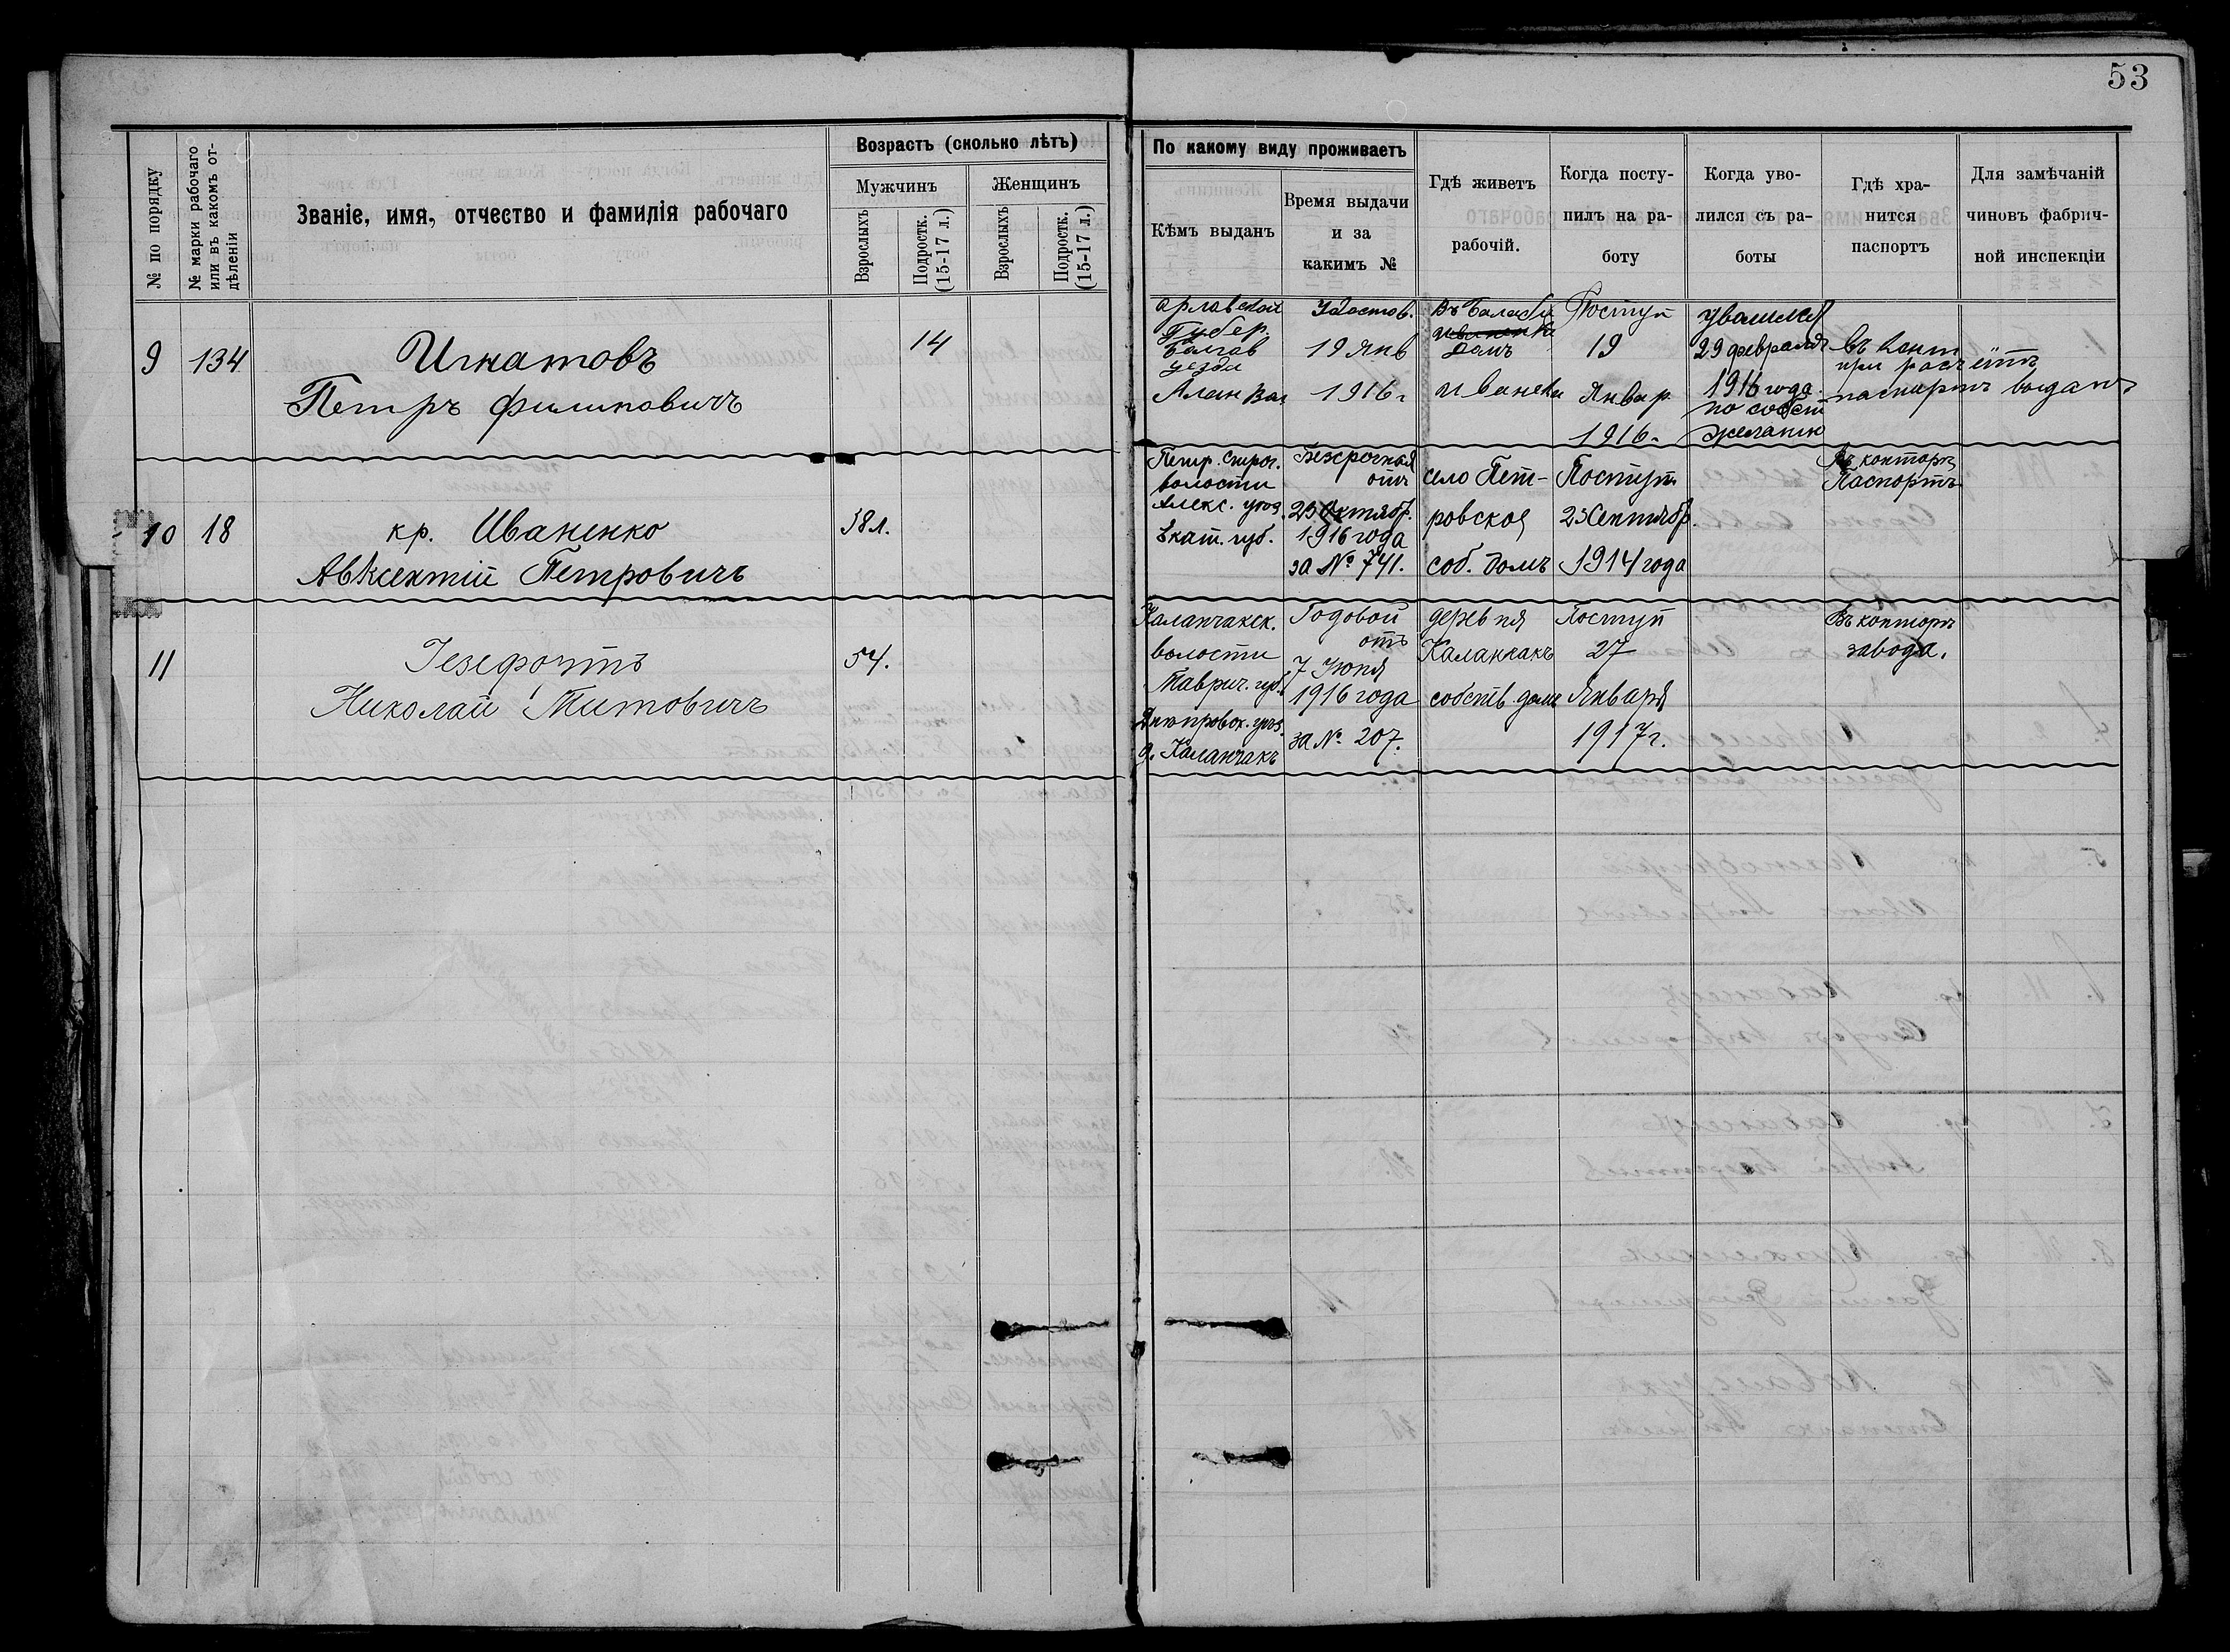 53
№ по порядку
№ марки рабочаго
или въ какомъ от-
дѣленіи
Званіе, имя, отчество и фамилія рабочаго
Возрастъ (сколько лѣтъ)
Мужчинъ
Женщинъ
Взрослыхъ
Подростк.
(15-17 л.)
Взрослыхъ
Подростк.
(15-17 л.)
По какому виду проживаетъ
Кѣмъ выданъ
Время выдачи
и за
какимъ №
Гдѣ живетъ
рабочій.
Когда посту-
пилъ на ра-
боту
Когда уво-
лился съ ра-
боты
Гдѣ хра-
нится
паспортъ
Для замѣчаній
чиновъ фабрич-
ной инспекціи
9
134
Игнатовъ
Петръ Филиповичъ
14
Губер.
уезда
Удостов.
19 Янв
1916 г
Домъ
Поступ
19
Январ
1916 г
29 февраля
1916 года
по собст
желанию
при расчётъ
паспортъ выданъ
10
18
кр. Иваненко
Авксентій Петровичъ
38 л.
волости
Алекс. уѣз.
Екат. губ.
Безсрочный
отъ
23 Октябр.
1916 года
за № 741.
село Пет-
ровское
соб. домъ
Поступ.
23 Сентябр.
1914 года
Въ конторѣ
Паспортъ
11
Николай Титовичъ
54.
Каланчакск.
волости
Таврич. губ.
Днѣпровск. уѣз.
д. Каланчакъ
Годовой
отъ
7 Июня
1916 года
за № 207.
деревня
Каланчакъ
собств. домъ
Поступ
27
Января
1917 г.
Въ конторѣ
завода.